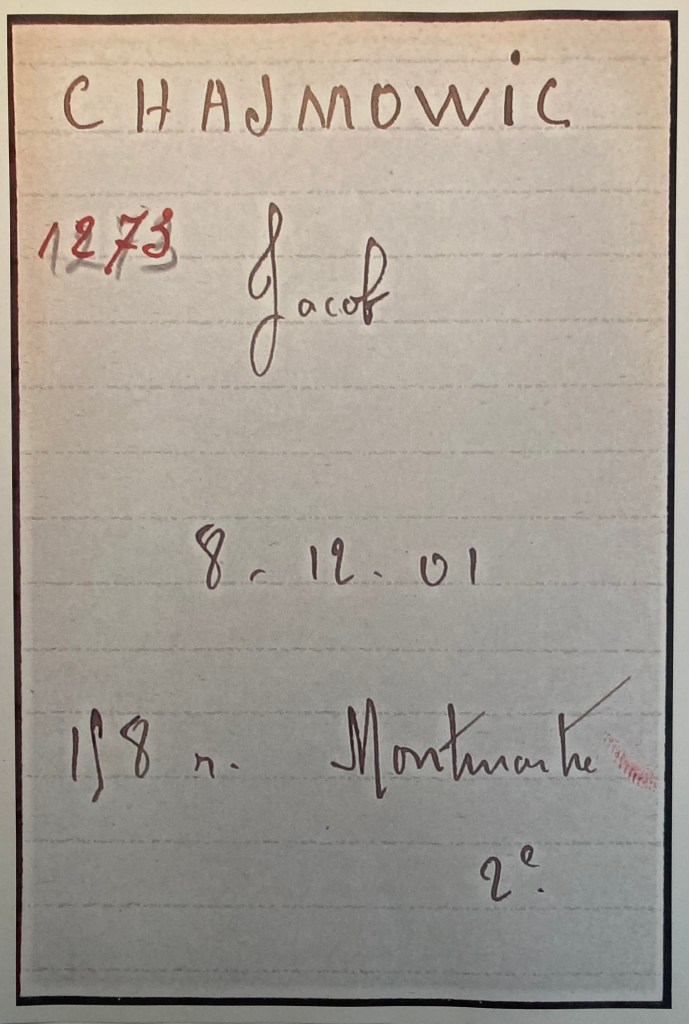 CHAJMOWiC
1273
Jacob
8. 12. 01
158 r. Montmartre
2e.